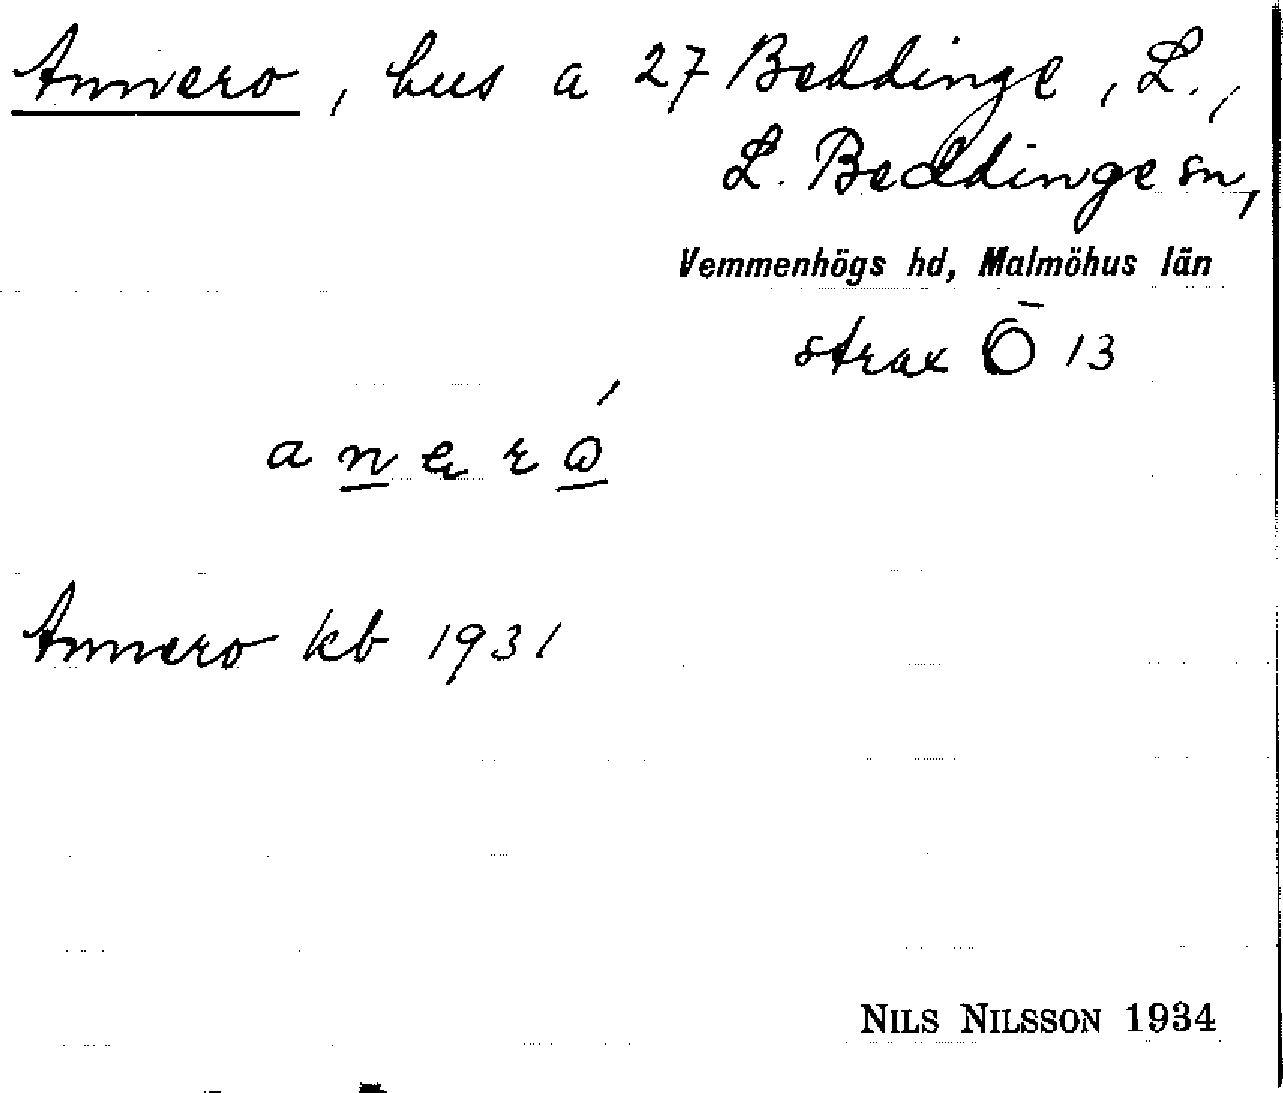 Annero, hus a 27 Beddinge, L.,
L. Beddinge sn,
Vemmenhögs hd, Malmöhus län
strax Ö 13
Annero kb 1931
NILS NILSSON 1934